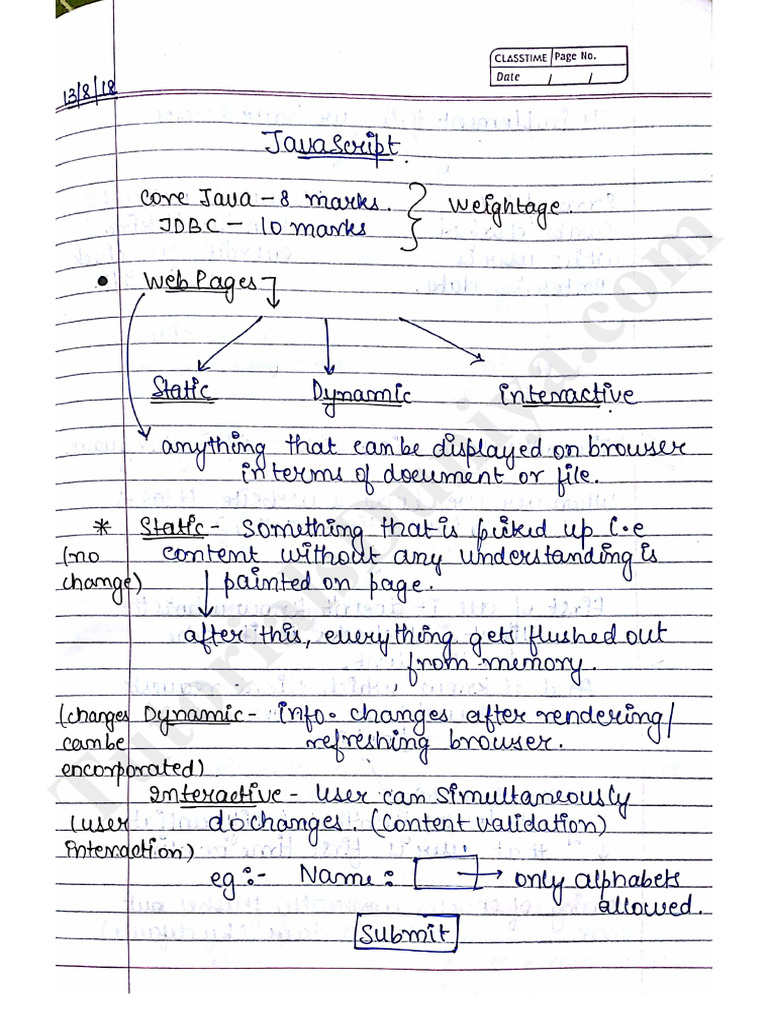 CLASSTIME Page No.
Date / /
13/8/18
JavaScript.
Core Java - 8 marks. } Weightage.
JDBC - 10 marks
• Web Pages
Static Dynamic interactive
anything that can be displayed on browser
in terms of document or file.
* Static - Something that is picked up i.e
(no content without any understanding is
change) painted on page.
after this, everything gets flushed out
from memory.
(changes Dynamic - info. changes after rendering/
can be refreshing browser.
encorporated)
Interactive - User can simultaneously
(user do changes. (Content validation)
interaction)
eg:- Name: → only alphabets
allowed.
Submit
TutorialsDuniya.com